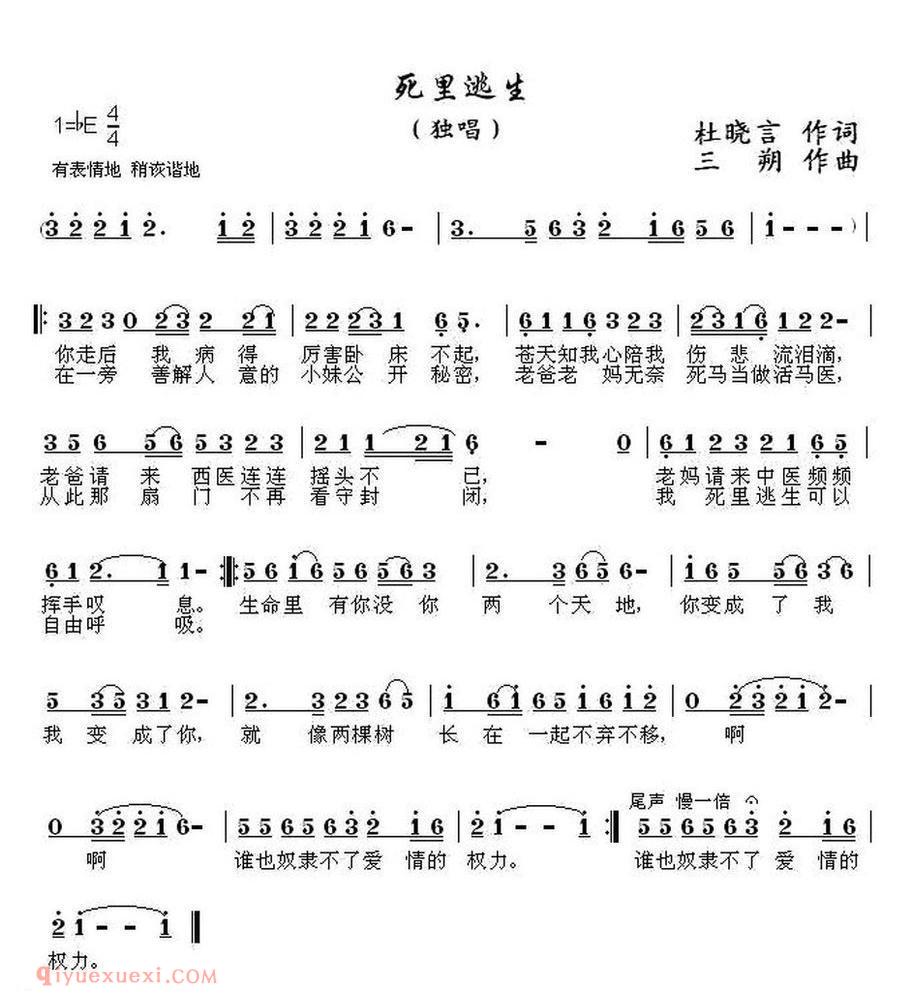 死里逃生
(独唱)
1=♭E 4/4
杜晓言 作词
有表情地 稍诙谐地
三 朔 作曲
(3 2 2 1 2. 1 2 | 3 2 2 1 6 - | 3. 5 6 3 2 1 6 5 6 | 1 - - - ) |
‖: 3 2 3 0 2 3 2 2 1 | 2 2 2 3 1 6 5. | 6 1 1 6 3 2 3 | 2 3 1 6 1 2 2 - |
你走后 我 病 得 厉害卧 床 不起, 苍天知我心陪我 伤 悲 流泪滴,
在一旁 善解人 意的 小妹公 开 秘密, 老爸老 妈无奈 死马当做活马医,
3 5 6 5 6 5 3 2 3 | 2 1 1 2 1 6 - 0 | 6 1 2 3 2 1 6 5 |
老爸请 来 西医连连 摇头不 已, 老妈请来中医频频
从此那 扇 门 不再 看守封 闭, 我 死里逃生可以
6 1 2. 1 1 - :‖: 5 6 1 6 5 6 5 6 3 | 2. 3 6 5 6 - | 1 6 5 5 6 3 6 |
挥手叹 息。 生命里 有你没你 两 个天 地, 你变成 了 我
自由呼 吸。
5 3 5 3 1 2 - | 2. 3 2 3 6 5 | 1 6 1 5 6 5 6 1 2 | 0 2 3 2 1 2 - |
我 变 成了你, 就 像两棵树 长 在 一起不弃不移, 啊
尾声 慢一倍
0 3 2 2 1 6 - | 5 5 6 5 6 3 2 1 6 | 2 1 - - 1 :‖ 5 5 6 5 6 3 2 1 6 |
啊 谁也奴隶不了爱 情的 权力。 谁也奴隶不了爱 情的
2 1 - - 1 ‖
权力。
qiyuexuexi.com